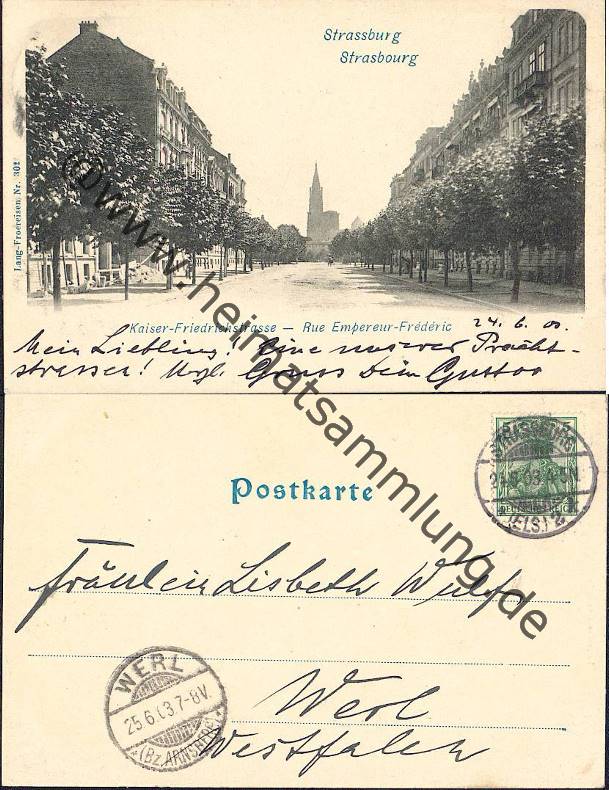 Strassburg
Strasbourg
Lang-Froereisen Nr. 302
Kaiser-Friedrichstrasse — Rue Empereur-Frédéric
24. 6. 03.
Mein Liebling! Eine unserer Pracht-
strassen! Gruss Dein Gustav
©www.heimatsammlung.de
Postkarte
STRASSBURG
(ELS.) 2
5 5
DEUTSCHES REICH
Fräulein Lisbeth
Werl
Westfalen
WERL
25.6.03.7-8V.
(Bz. ARNSBERG)